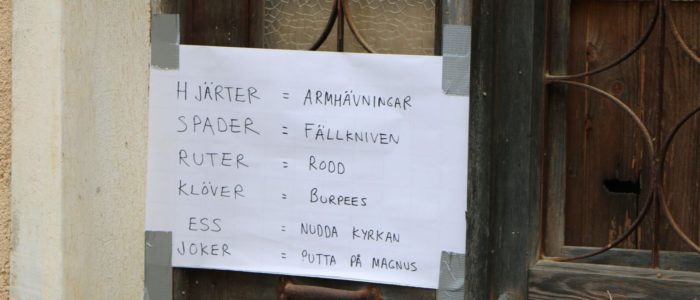 HJÄRTER = ARMHÄVNINGAR
SPADER = FÄLLKNIVEN
RUTER = RODD
KLÖVER = BURPEES
ESS = NUDDA KYRKAN
JOKER = PUTTA PÅ MAGNUS